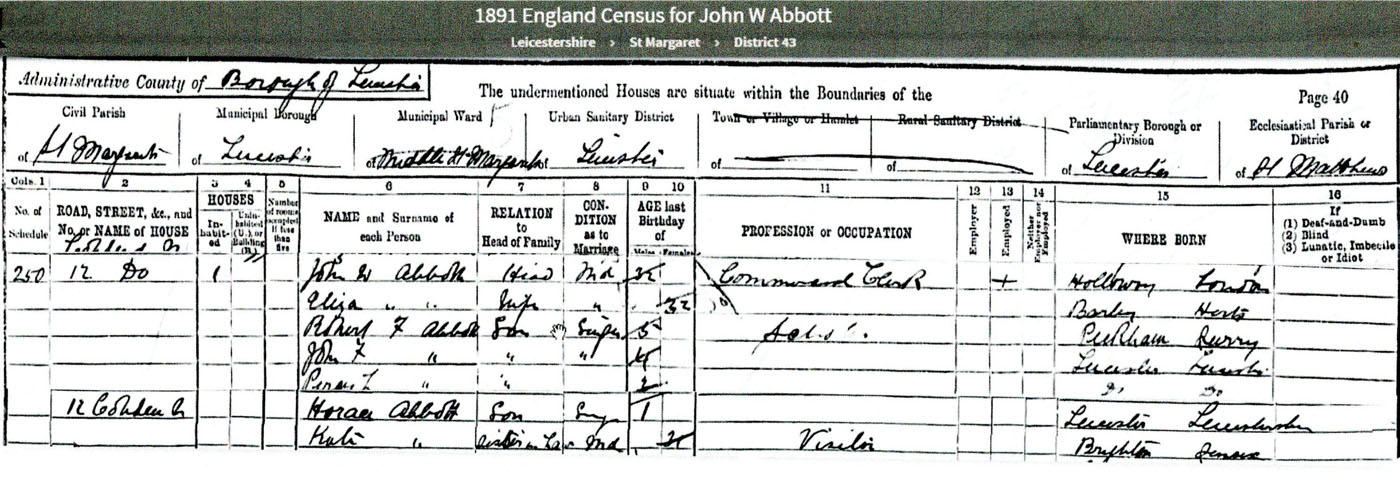 1891 England Census for John W Abbott
Leicestershire > St Margaret > District 43
Administrative County of Borough of Leicester
The undermentioned Houses are situate within the Boundaries of the
Page 40
Civil Parish
Municipal Borough
Municipal Ward
Urban Sanitary District
Town or Village or Hamlet
Rural Sanitary District
Parliamentary Borough or Division
Ecclesiastical Parish or District
of St Margarets
of Leicester
of Middle St Margarets
of Leicester
of
of
of Leicester
of St Matthews
Cols. 1 2 3 4 5 6 7 8 9 10 11 12 13 14 15 16
No. of Schedule
ROAD, STREET, &c., and No. or NAME of HOUSE
HOUSES
In-habit-ed
Unin-habited (U.), or Building (B.)
Number of rooms occupied if less than five
NAME and Surname of each Person
RELATION to Head of Family
CON-DITION as to Marriage
AGE last Birthday of
Males Females
PROFESSION or OCCUPATION
Employer
Employed
Neither Employer nor Employed
WHERE BORN
If
(1) Deaf-and-Dumb
(2) Blind
(3) Lunatic, Imbecile or Idiot
250 12 Do 1 John W Abbott Head Md 32 Commercial Clerk + Holloway London
Eliza " " Wife " 32 Do Barley Herts
Robert F Abbott Son Single 5 School Peckham Surry
John F " " " 4 Leicester
" " 2 Do Do
12 Cobden Horace Abbott Son Sing 1 Leicester Leicestershire
Kate " Sister in Law Md Visitor Brighton Sussex